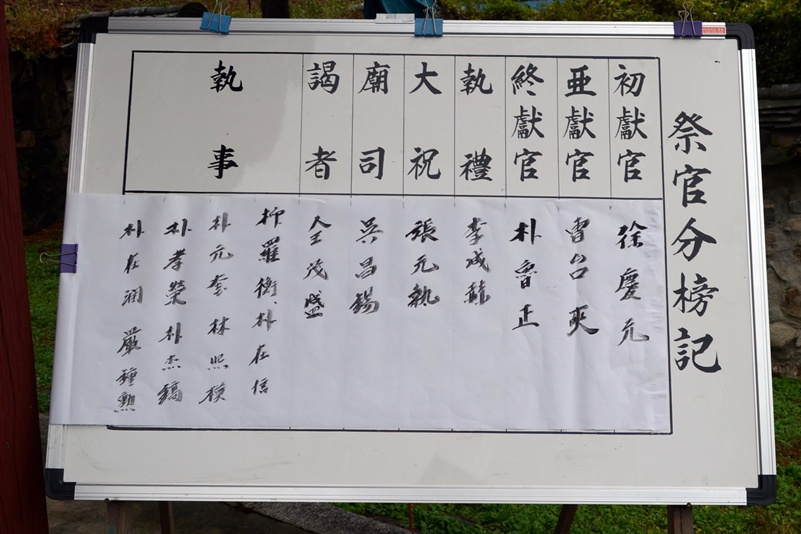 祭官分榜記
初獻官
亜獻官
終獻官
執禮
大祝
廟司
謁者
執事
徐慶允
曺台
朴魯正
李成
張元執
吳昌錫
全茂盛
柳羅衡、朴在信
朴元 林熙模
朴孝榮 朴杰鎬
朴在潤 嚴鍾勲